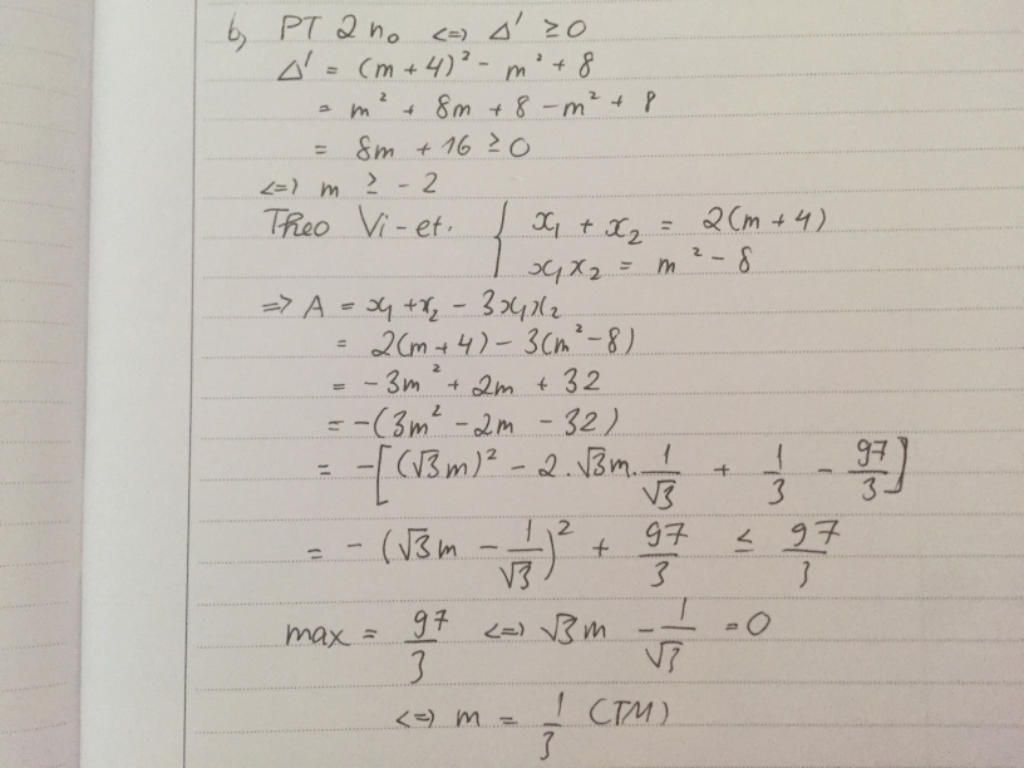 b, PT 2 n₀ <=> Δ' ≥ 0
Δ' = (m + 4)² - m² + 8
= m² + 8m + 8 - m² + 8
= 8m + 16 ≥ 0
<=> m ≥ - 2
Theo Vi-et. { x₁ + x₂ = 2(m + 4)
x₁x₂ = m² - 8
=> A = x₁ + x₂ - 3x₁x₂
= 2(m + 4) - 3(m² - 8)
= - 3m² + 2m + 32
= -(3m² - 2m - 32)
= -[(√3m)² - 2.√3m.1/√3 + 1/3 - 97/3]
= - (√3m - 1/√3)² + 97/3 ≤ 97/3
max = 97/3 <=> √3m - 1/√3 = 0
<=> m = 1/3 (TM)